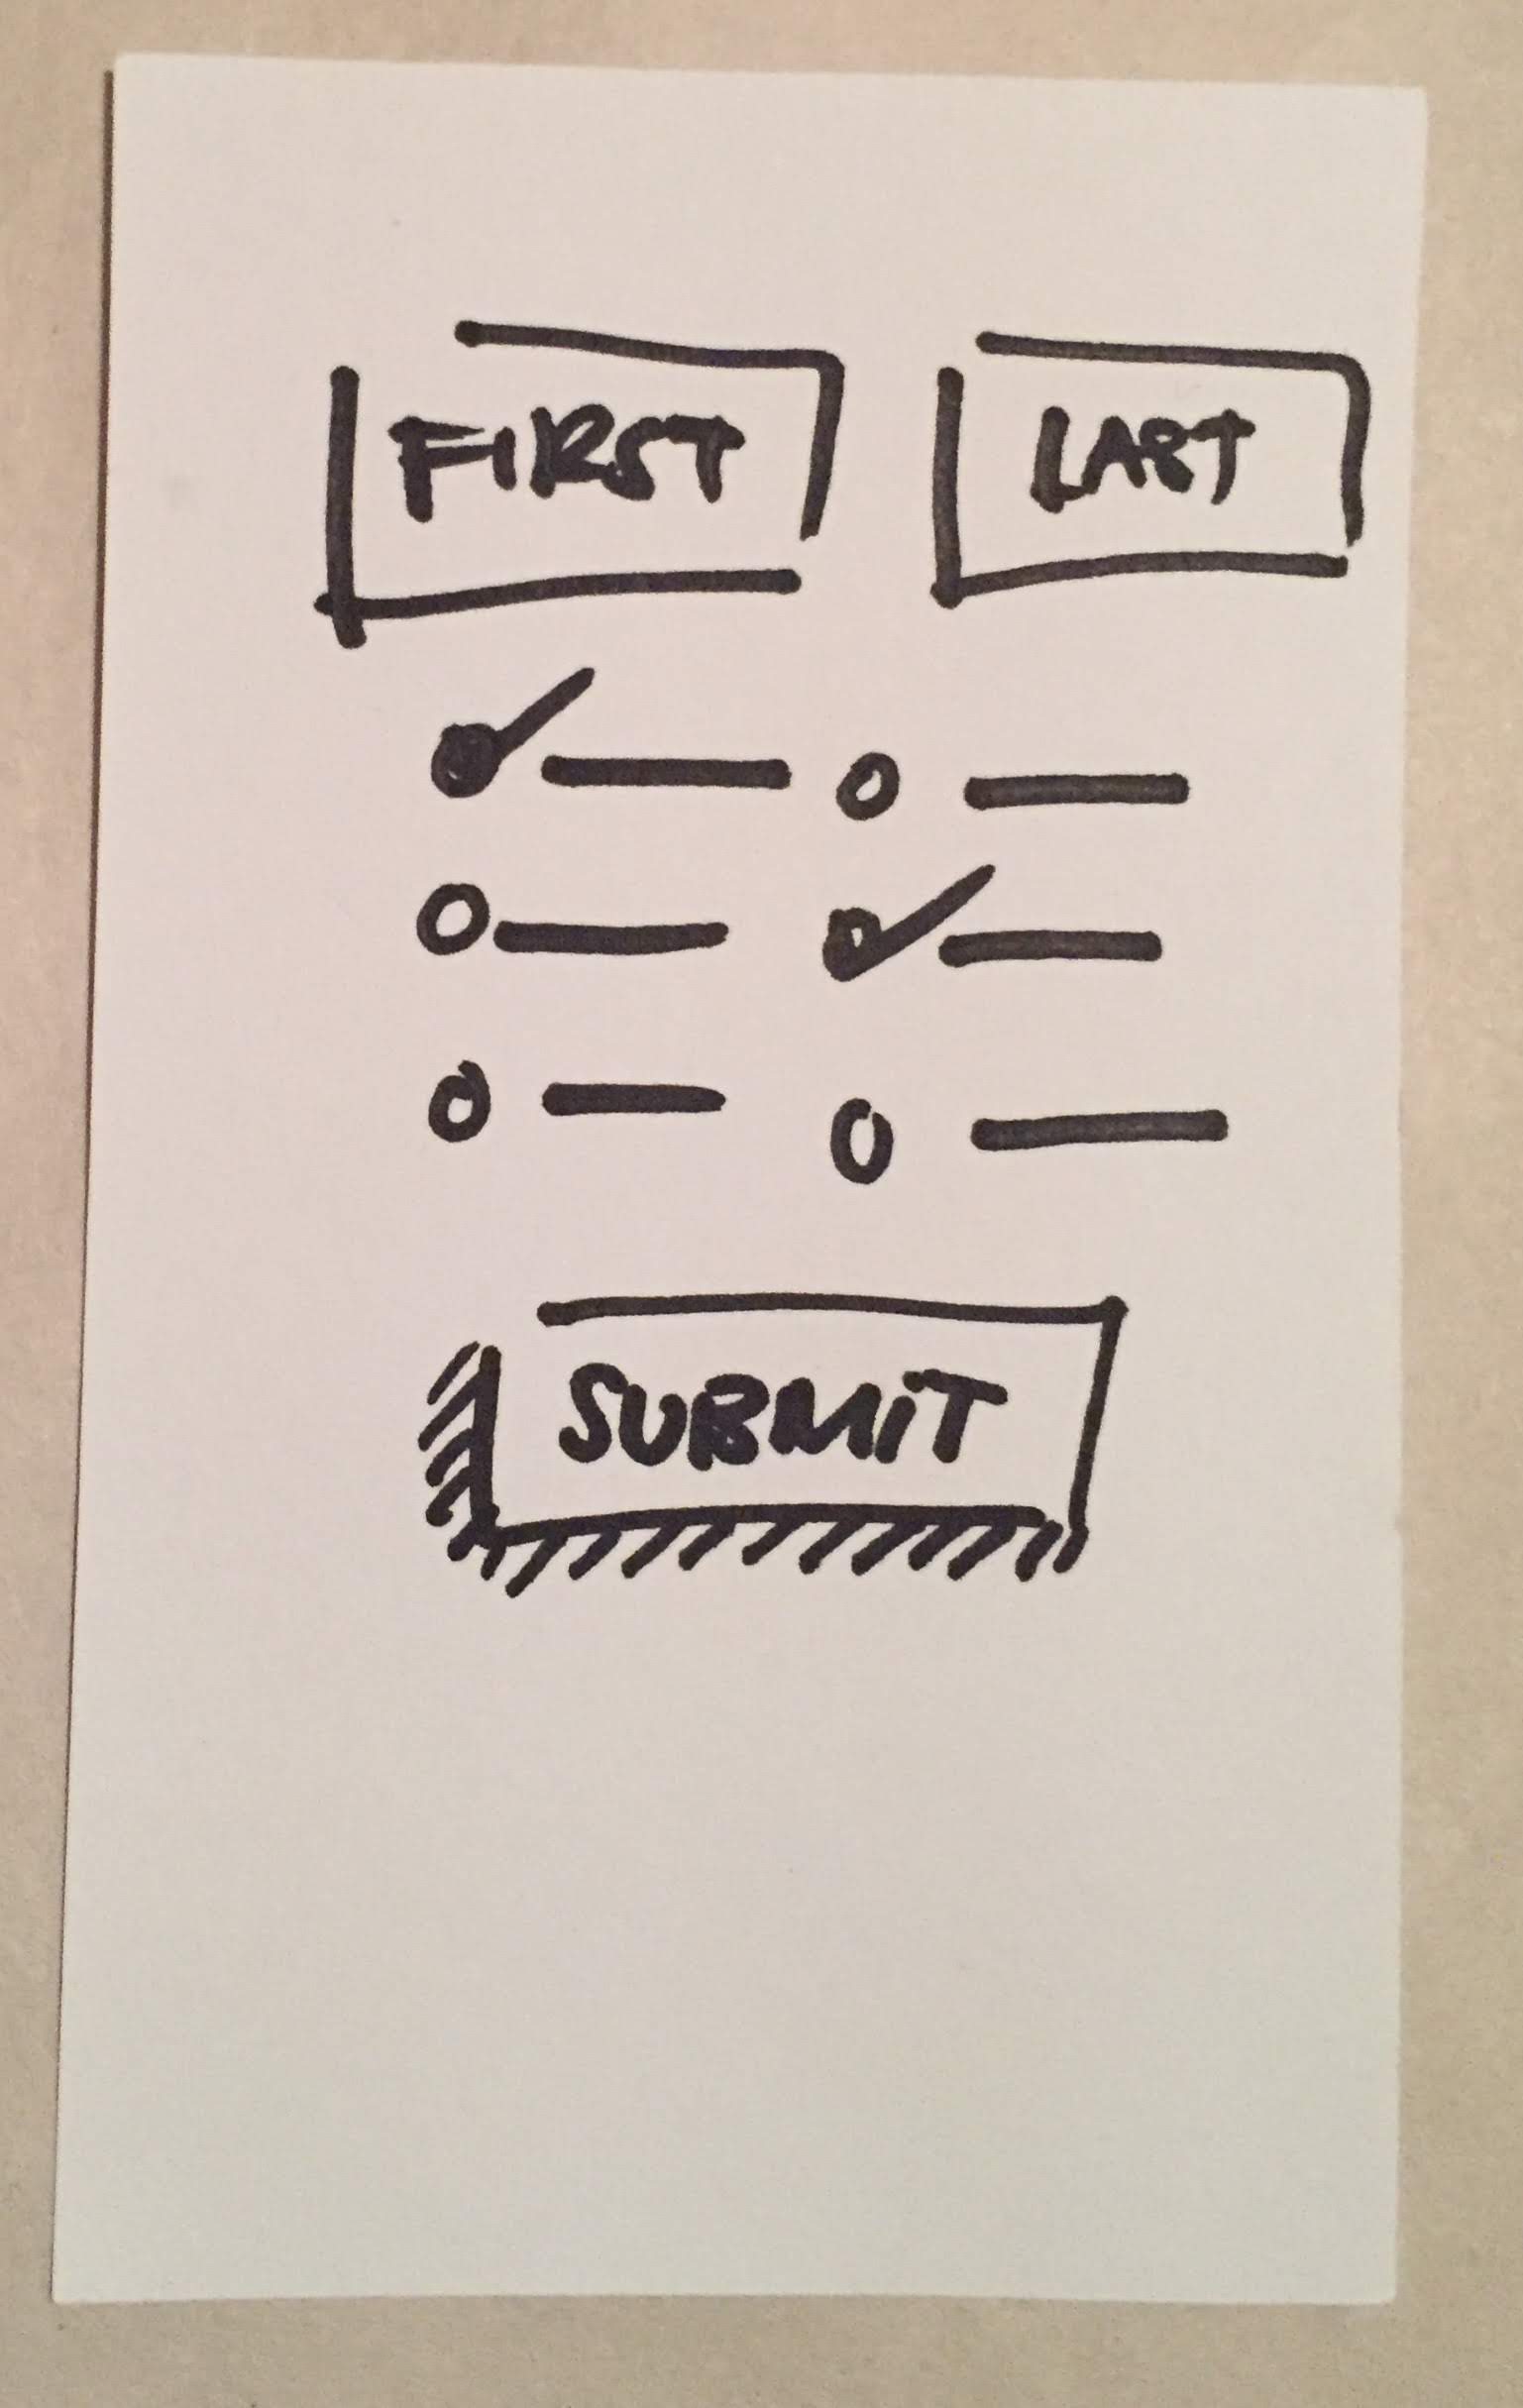 FIRST LAST
SUBMIT